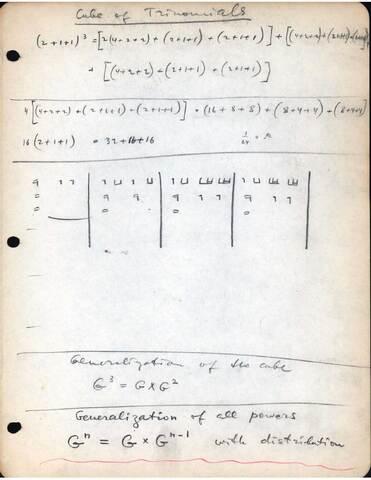 Cube of Trinomials
(2+1+1)³ = [2(4+2+2) + (2+1+1) + (2+1+1)] + [(4+2+2) + (2+1+1) + (2+1+1)]
+ [(4+2+2) + (2+1+1) + (2+1+1)]
4[(4+2+2) + (2+1+1) + (2+1+1)] = (16+8+8) + (8+4+4) + (8+4+4)
16(2+1+1) = 32+16+16
Generalization of the cube
G³ = G × G²
Generalization of all powers
Gⁿ = G × Gⁿ⁻¹ with distribution